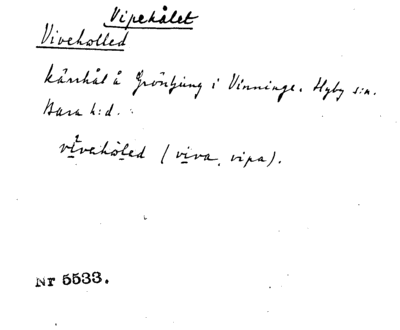 Vipehålet
Viveholled
Kärrhål å Grönljung i Vinninge. Hyby s:n.
Bara h:d.
vivehòled (viva, vipa).
Nr 5533.